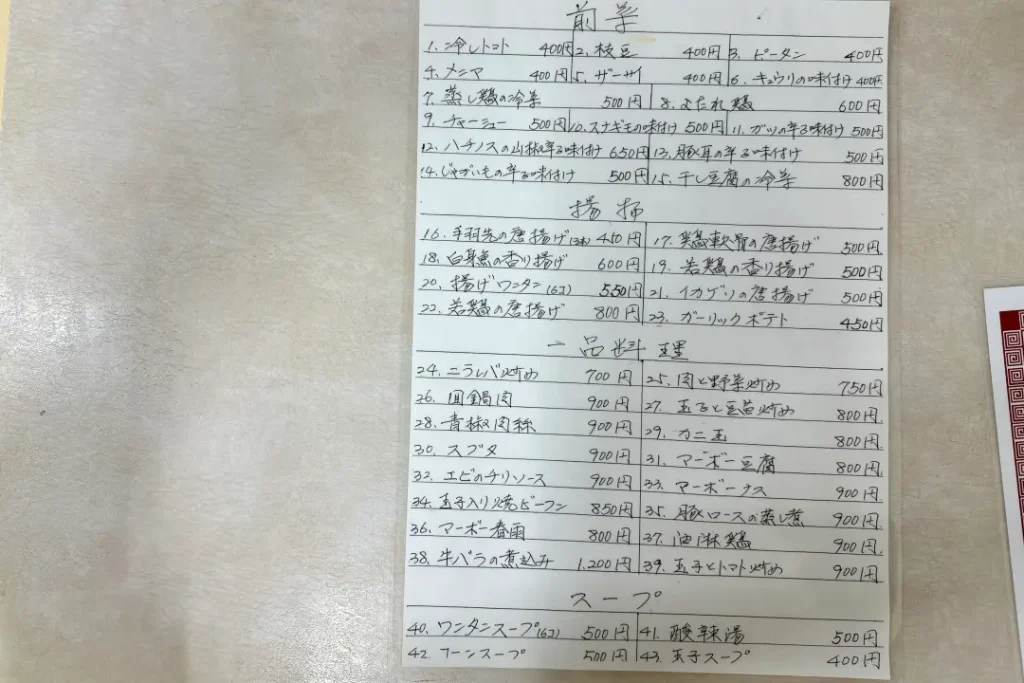 前菜
1. 冷しトマト 400円 2. 枝豆 400円 3. ピータン 400円
4. メンマ 400円 5. ザーサイ 400円 6. キュウリの味付け 400円
7. 蒸し鶏の冷菜 500円 8. よだれ鶏 600円
9. チャーシュー 500円 10. スナギモの味付け 500円 11. ガツの辛る味付け 500円
12. ハチノスの山椒辛る味付け 650円 13. 豚耳の辛る味付け 500円
14. じゃがいもの辛る味付け 500円 15. 干し豆腐の冷菜 800円
揚物
16. 手羽先の唐揚げ(3本) 450円 17. 鶏軟骨の唐揚げ 500円
18. 白身魚の香り揚げ 600円 19. 若鶏の香り揚げ 500円
20. 揚げワンタン(6コ) 550円 21. イカゲソの唐揚げ 500円
22. 若鶏の唐揚げ 800円 23. ガーリックポテト 450円
一品料理
24. ニラレバ炒め 700円 25. 肉と野菜炒め 750円
26. 回鍋肉 900円 27. 玉子と豆苗炒め 800円
28. 青椒肉絲 900円 29. カニ玉 800円
30. スブタ 900円 31. マーボー豆腐 800円
32. エビのチリソース 900円 33. マーボーナス 900円
34. 玉子入り焼ビーフン 850円 35. 豚ロースの蒸し煮 900円
36. マーボー春雨 800円 37. 油淋鶏 900円
38. 牛バラの煮込み 1,200円 39. 玉子とトマト炒め 900円
スープ
40. ワンタンスープ(6コ) 500円 41. 酸辣湯 500円
42. コーンスープ 500円 43. 玉子スープ 400円